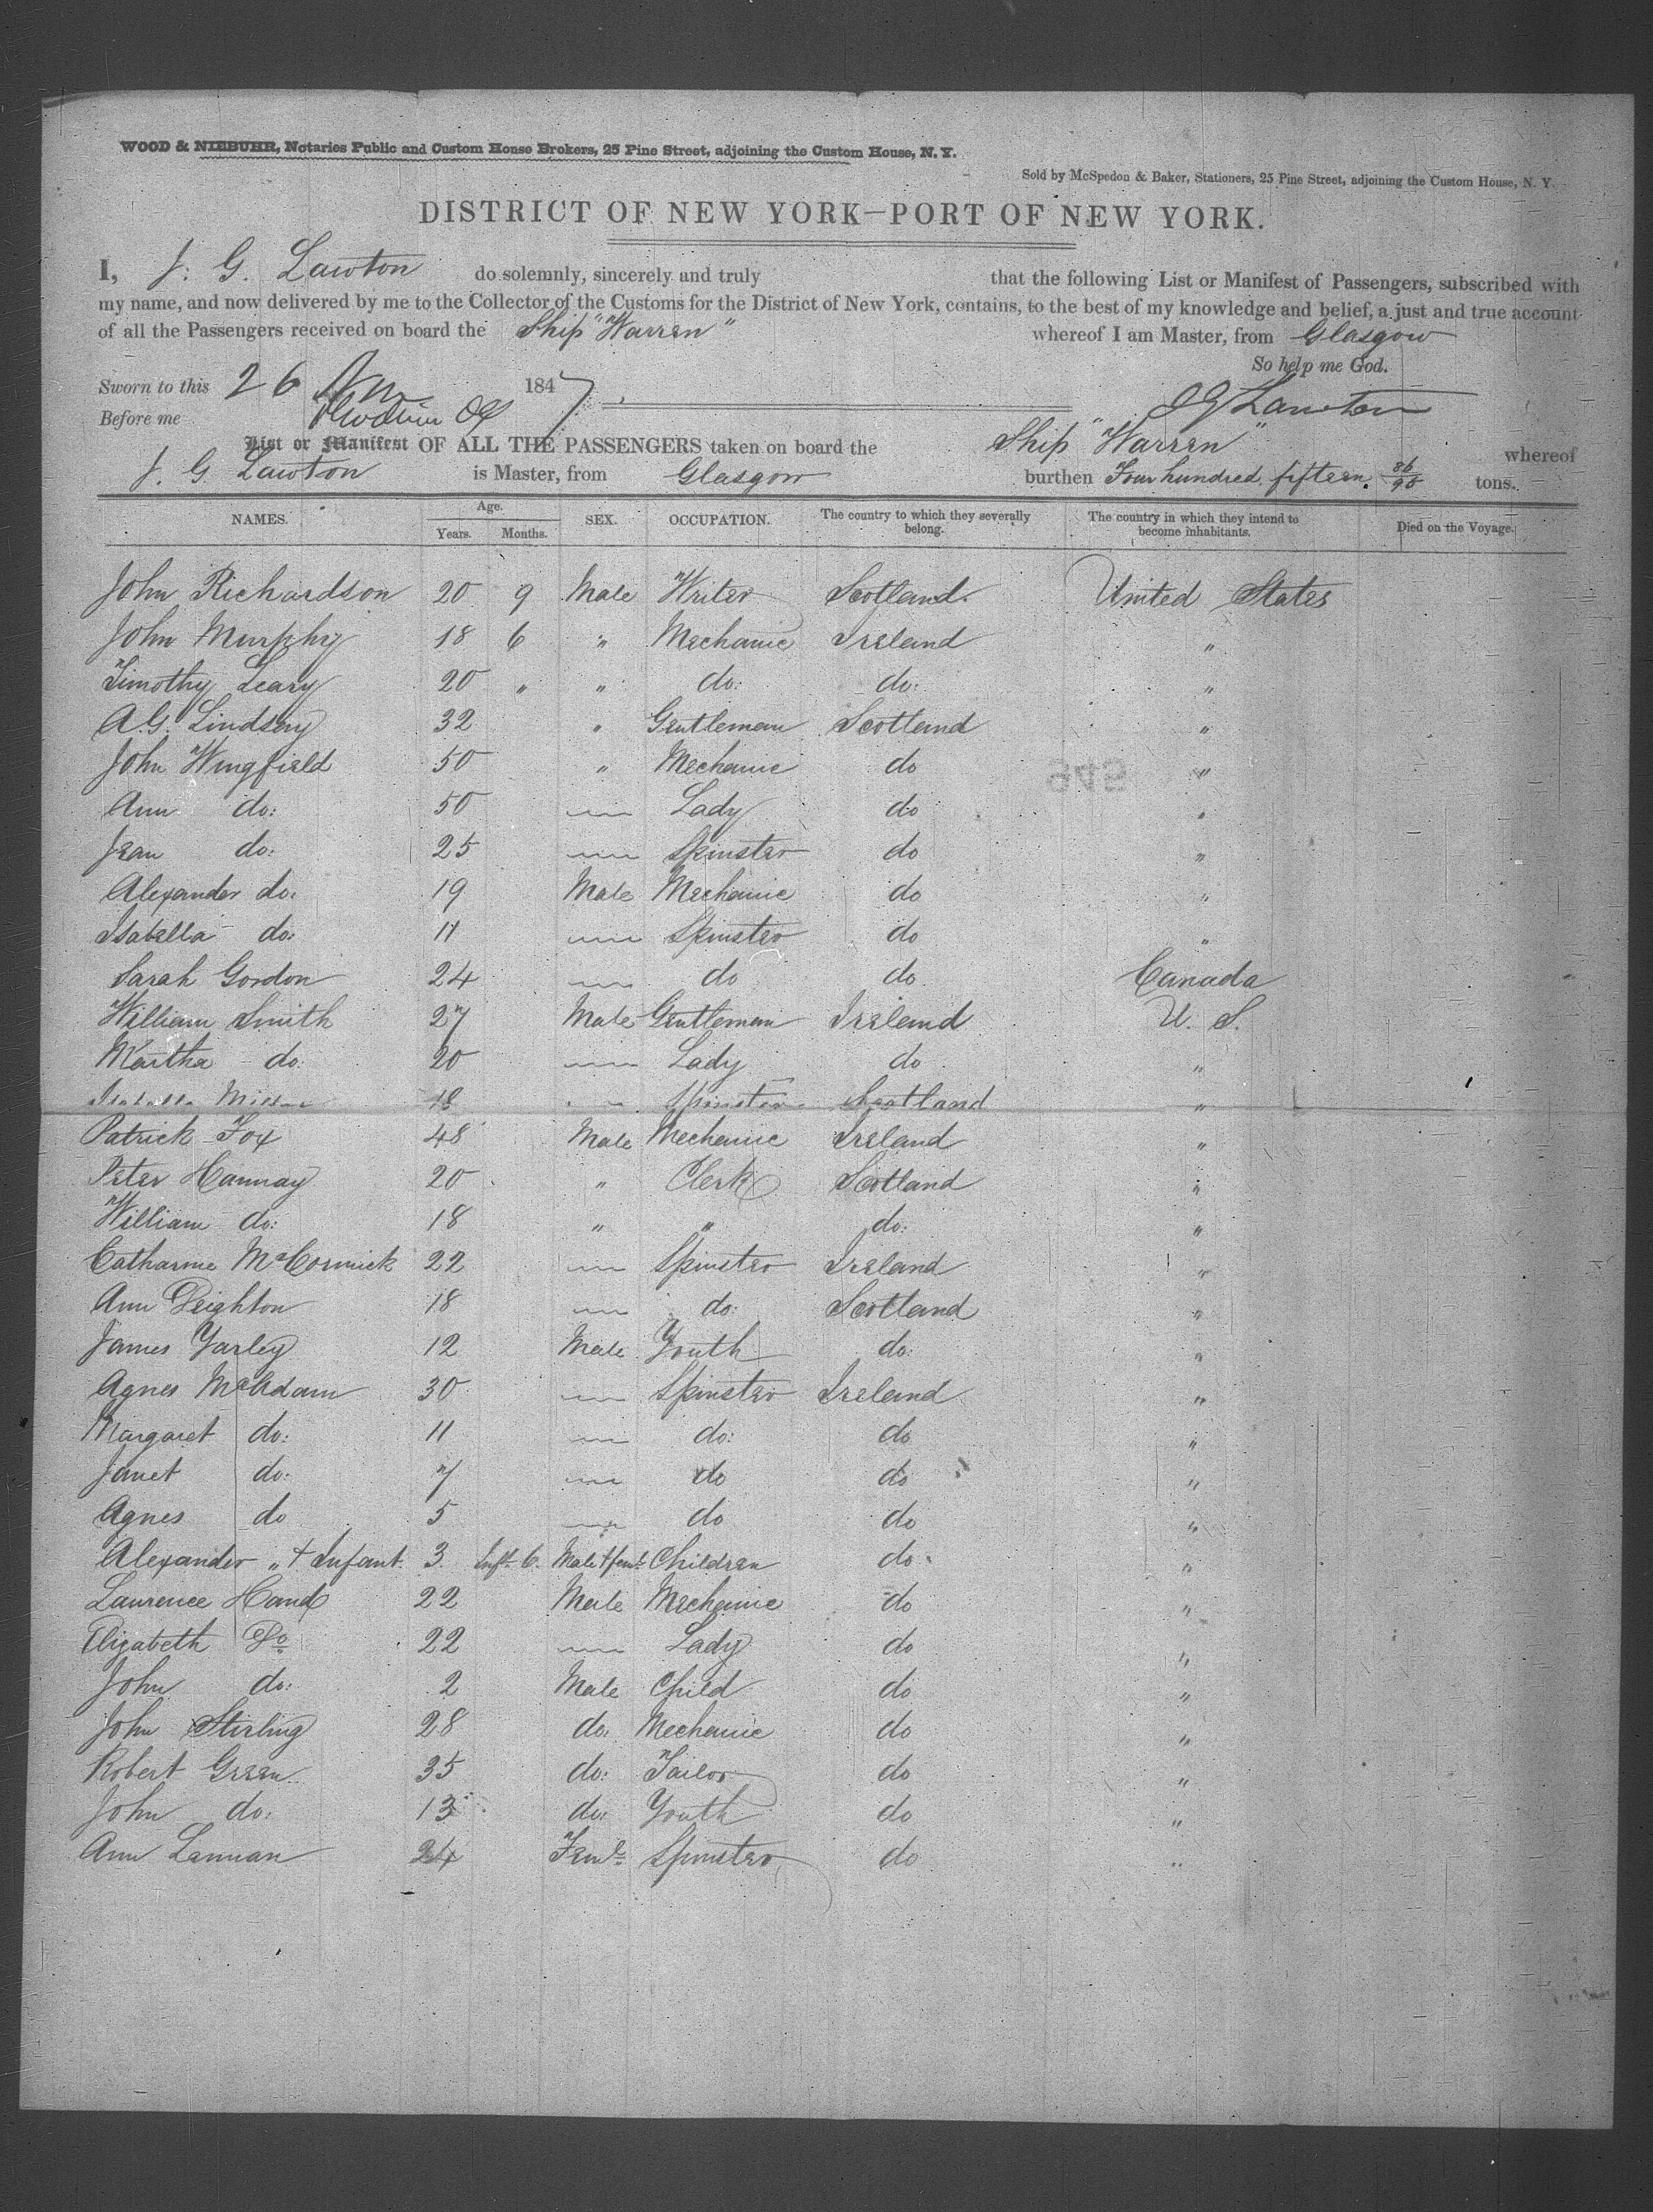 WOOD & NIEBUHR, Notaries Public and Custom House Brokers, 25 Pine Street, adjoining the Custom House, N. Y.
Sold by McSpedon & Baker, Stationers, 25 Pine Street, adjoining the Custom House, N. Y.
DISTRICT OF NEW YORK—PORT OF NEW YORK.
I, J. G. Lawton do solemnly, sincerely and truly that the following List or Manifest of Passengers, subscribed with
my name, and now delivered by me to the Collector of the Customs for the District of New York, contains, to the best of my knowledge and belief, a just and true account
of all the Passengers received on board the Ship "Warren" whereof I am Master, from Glasgow
So help me God.
Sworn to this 26 1847
Before me J G Lawton
List or Manifest OF ALL THE PASSENGERS taken on board the Ship "Warren" whereof
J. G. Lawton is Master, from Glasgow burthen Four hundred fifteen 86/95 tons.
NAMES. Age. Years. Months. SEX. OCCUPATION. The country to which they severally belong. The country in which they intend to become inhabitants. Died on the Voyage.
John Richardson 20 9 Male Writer Scotland United States
John Murphy 18 6 " Mechanic Ireland "
Timothy Leary 20 " " do: do: "
A.G. Lindsay 32 " Gentleman Scotland "
John Wingfield 50 " Mechanic do "
Ann do: 50 Lady do "
Jean do: 25 Spinster do "
Alexander do: 19 Male Mechanic do "
Isabella do: 11 Spinster do "
Sarah Gordon 24 do do Canada
William Smith 27 Male Gentleman Ireland U. S.
Martha do: 20 Lady do "
Isabella 18 Spinster Scotland "
Patrick Fox 48 Male Mechanic Ireland "
Peter Hannay 20 " Clerk Scotland "
William do: 18 " " do: "
Catharine McCormick 22 Spinster Ireland "
Ann Deighton 18 do: Scotland "
James Yarley 12 Male Youth do: "
Agnes McAdam 30 Spinster Ireland "
Margaret do: 11 do: do "
Janet do: 7 do do "
Agnes do 5 do do "
Alexander " + Infant 3 Inft. 6. Male + feml. Children do "
Laurence Hand 22 Male Mechanic do "
Elizabeth Do 22 Lady do "
John do: 2 Male Child do "
John Stirling 28 do: Mechanic do "
Robert Green 35 do: Tailor do "
John do: 13 do: Youth do "
Ann Lannan 24 Feml. Spinster do "